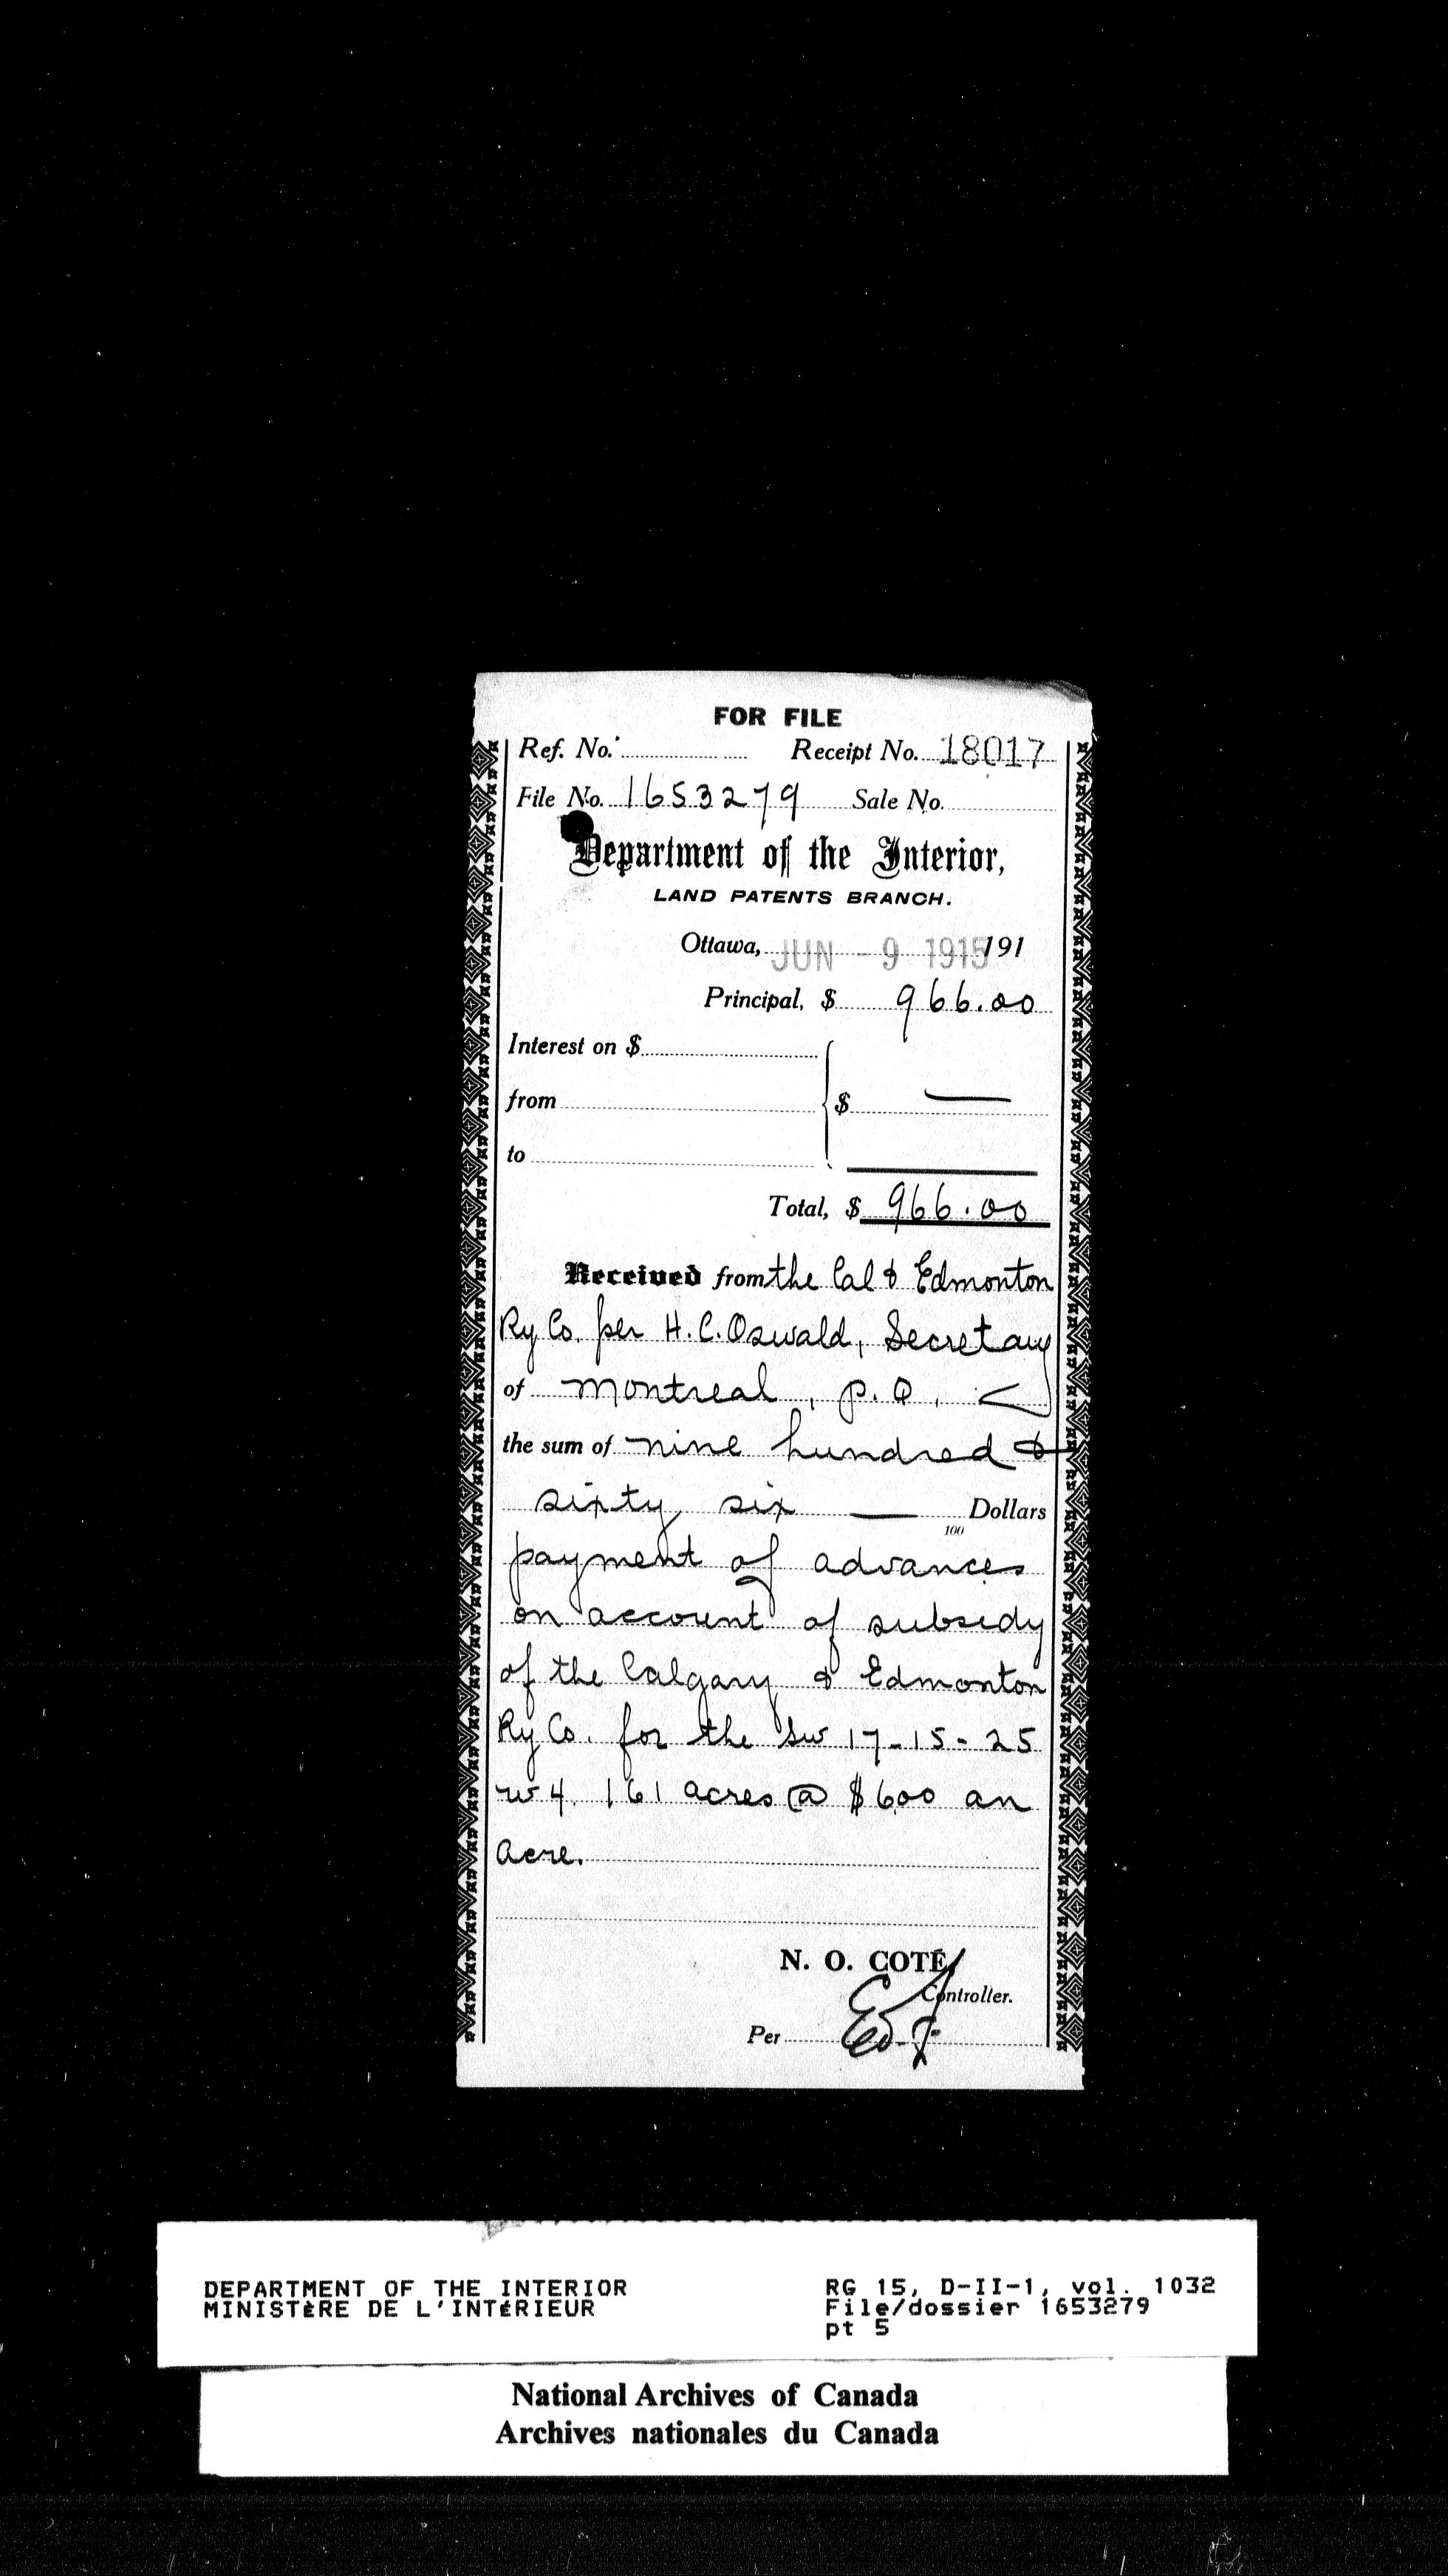 FOR FILE
Ref. No. Receipt No. 18017
File No. 1653279 Sale No.
Department of the Interior,
LAND PATENTS BRANCH.
Ottawa, JUN - 9 1915 191
Principal, $ 966.00
Interest on $
from $ —
to
Total, $ 966.00
Received from the Cal & Edmonton
Ry Co. per H. C. Oswald, Secretary
of Montreal, P.Q.
the sum of nine hundred &
sixty six — Dollars
100
payment of advances
on account of subsidy
of the Calgary & Edmonton
Ry Co. for the SW 17-15-25
W 4. 161 acres @ $6.00 an
acre.
N. O. COTÉ,
Controller.
Per
DEPARTMENT OF THE INTERIOR RG 15, D-II-1, vol. 1032
MINISTÈRE DE L'INTÉRIEUR File/dossier 1653279
pt 5
National Archives of Canada
Archives nationales du Canada